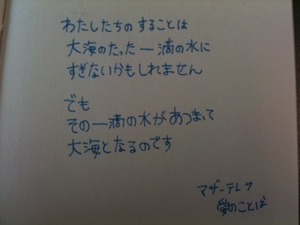 わたしたちのすることは
大海のたった一滴の水に
すぎないかもしれません
でも
その一滴の水があつまって
大海となるのです
マザーテレサ
愛のことば